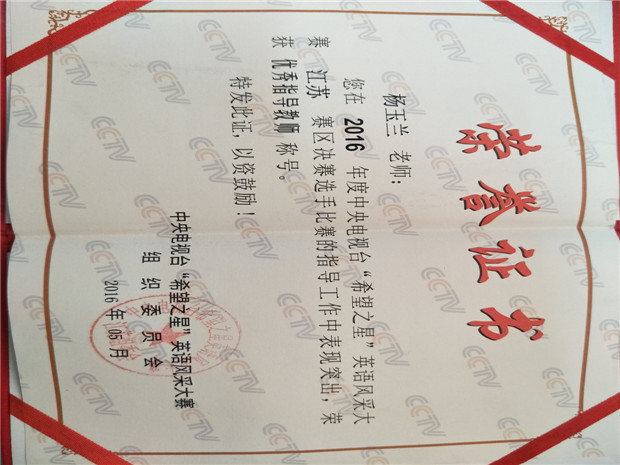 荣誉证书
杨玉兰 老师：
您在 2016 年度中央电视台“希望之星”英语风采大
赛 江苏 赛区决赛选手比赛的指导工作中表现突出，荣
获 优秀指导教师 称号。
特发此证，以资鼓励！
中央电视台“希望之星”英语风采大赛
组织委员会
2016年05月